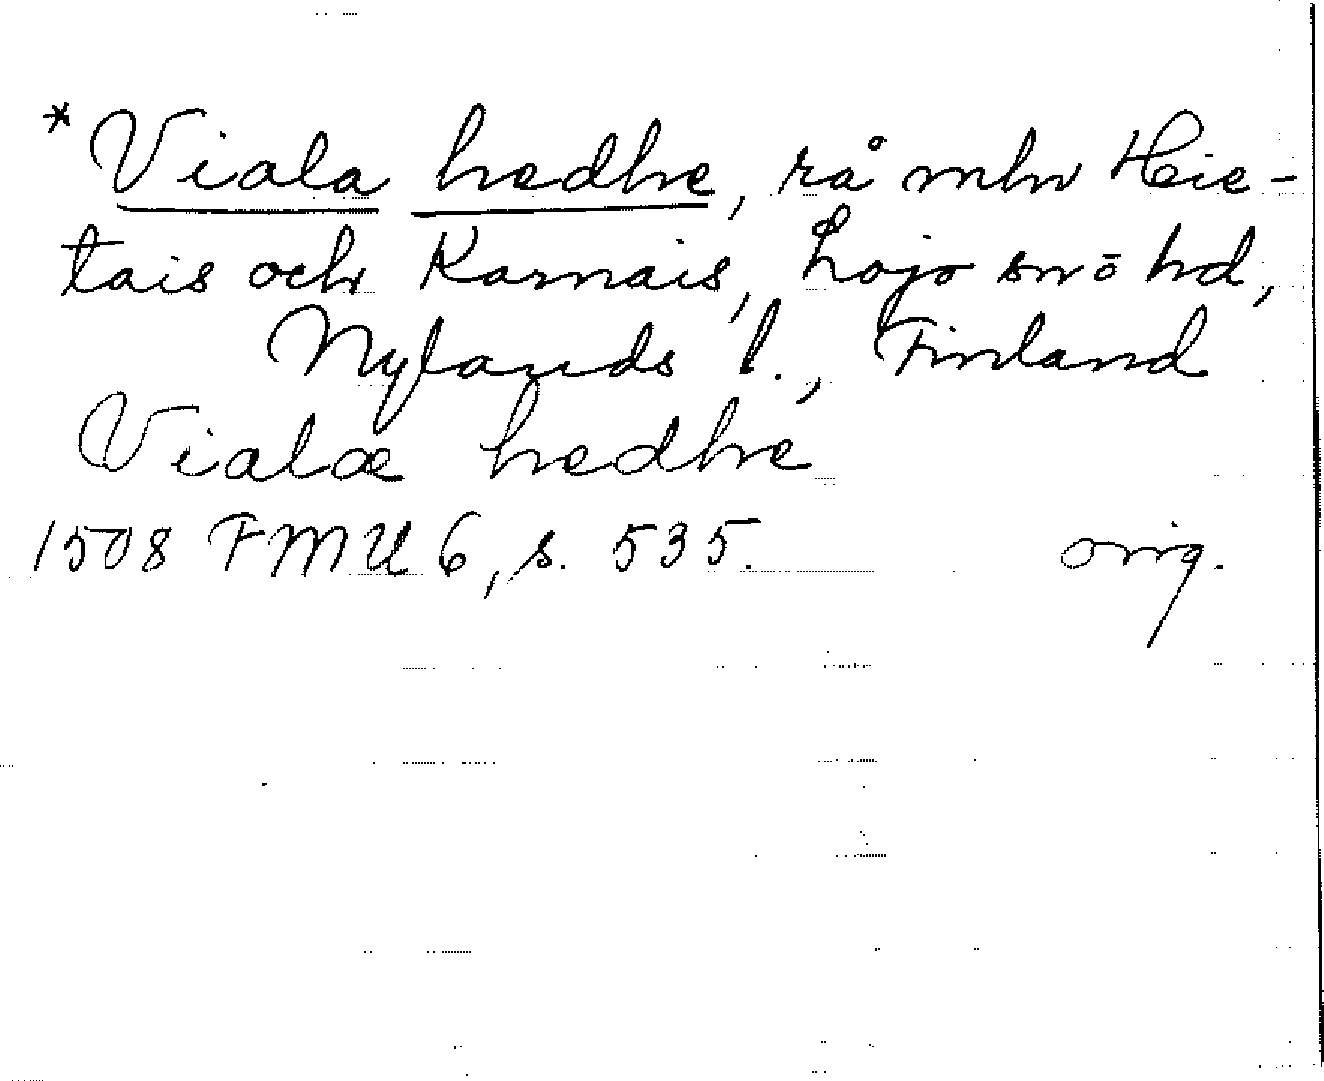 *Viala hedhe, rå mln Hie-
tais och Karnais, Lojo sn o hd,
Nylands l., Finland
Vialæ hedhe
1508 FMU 6, s. 535. orig.